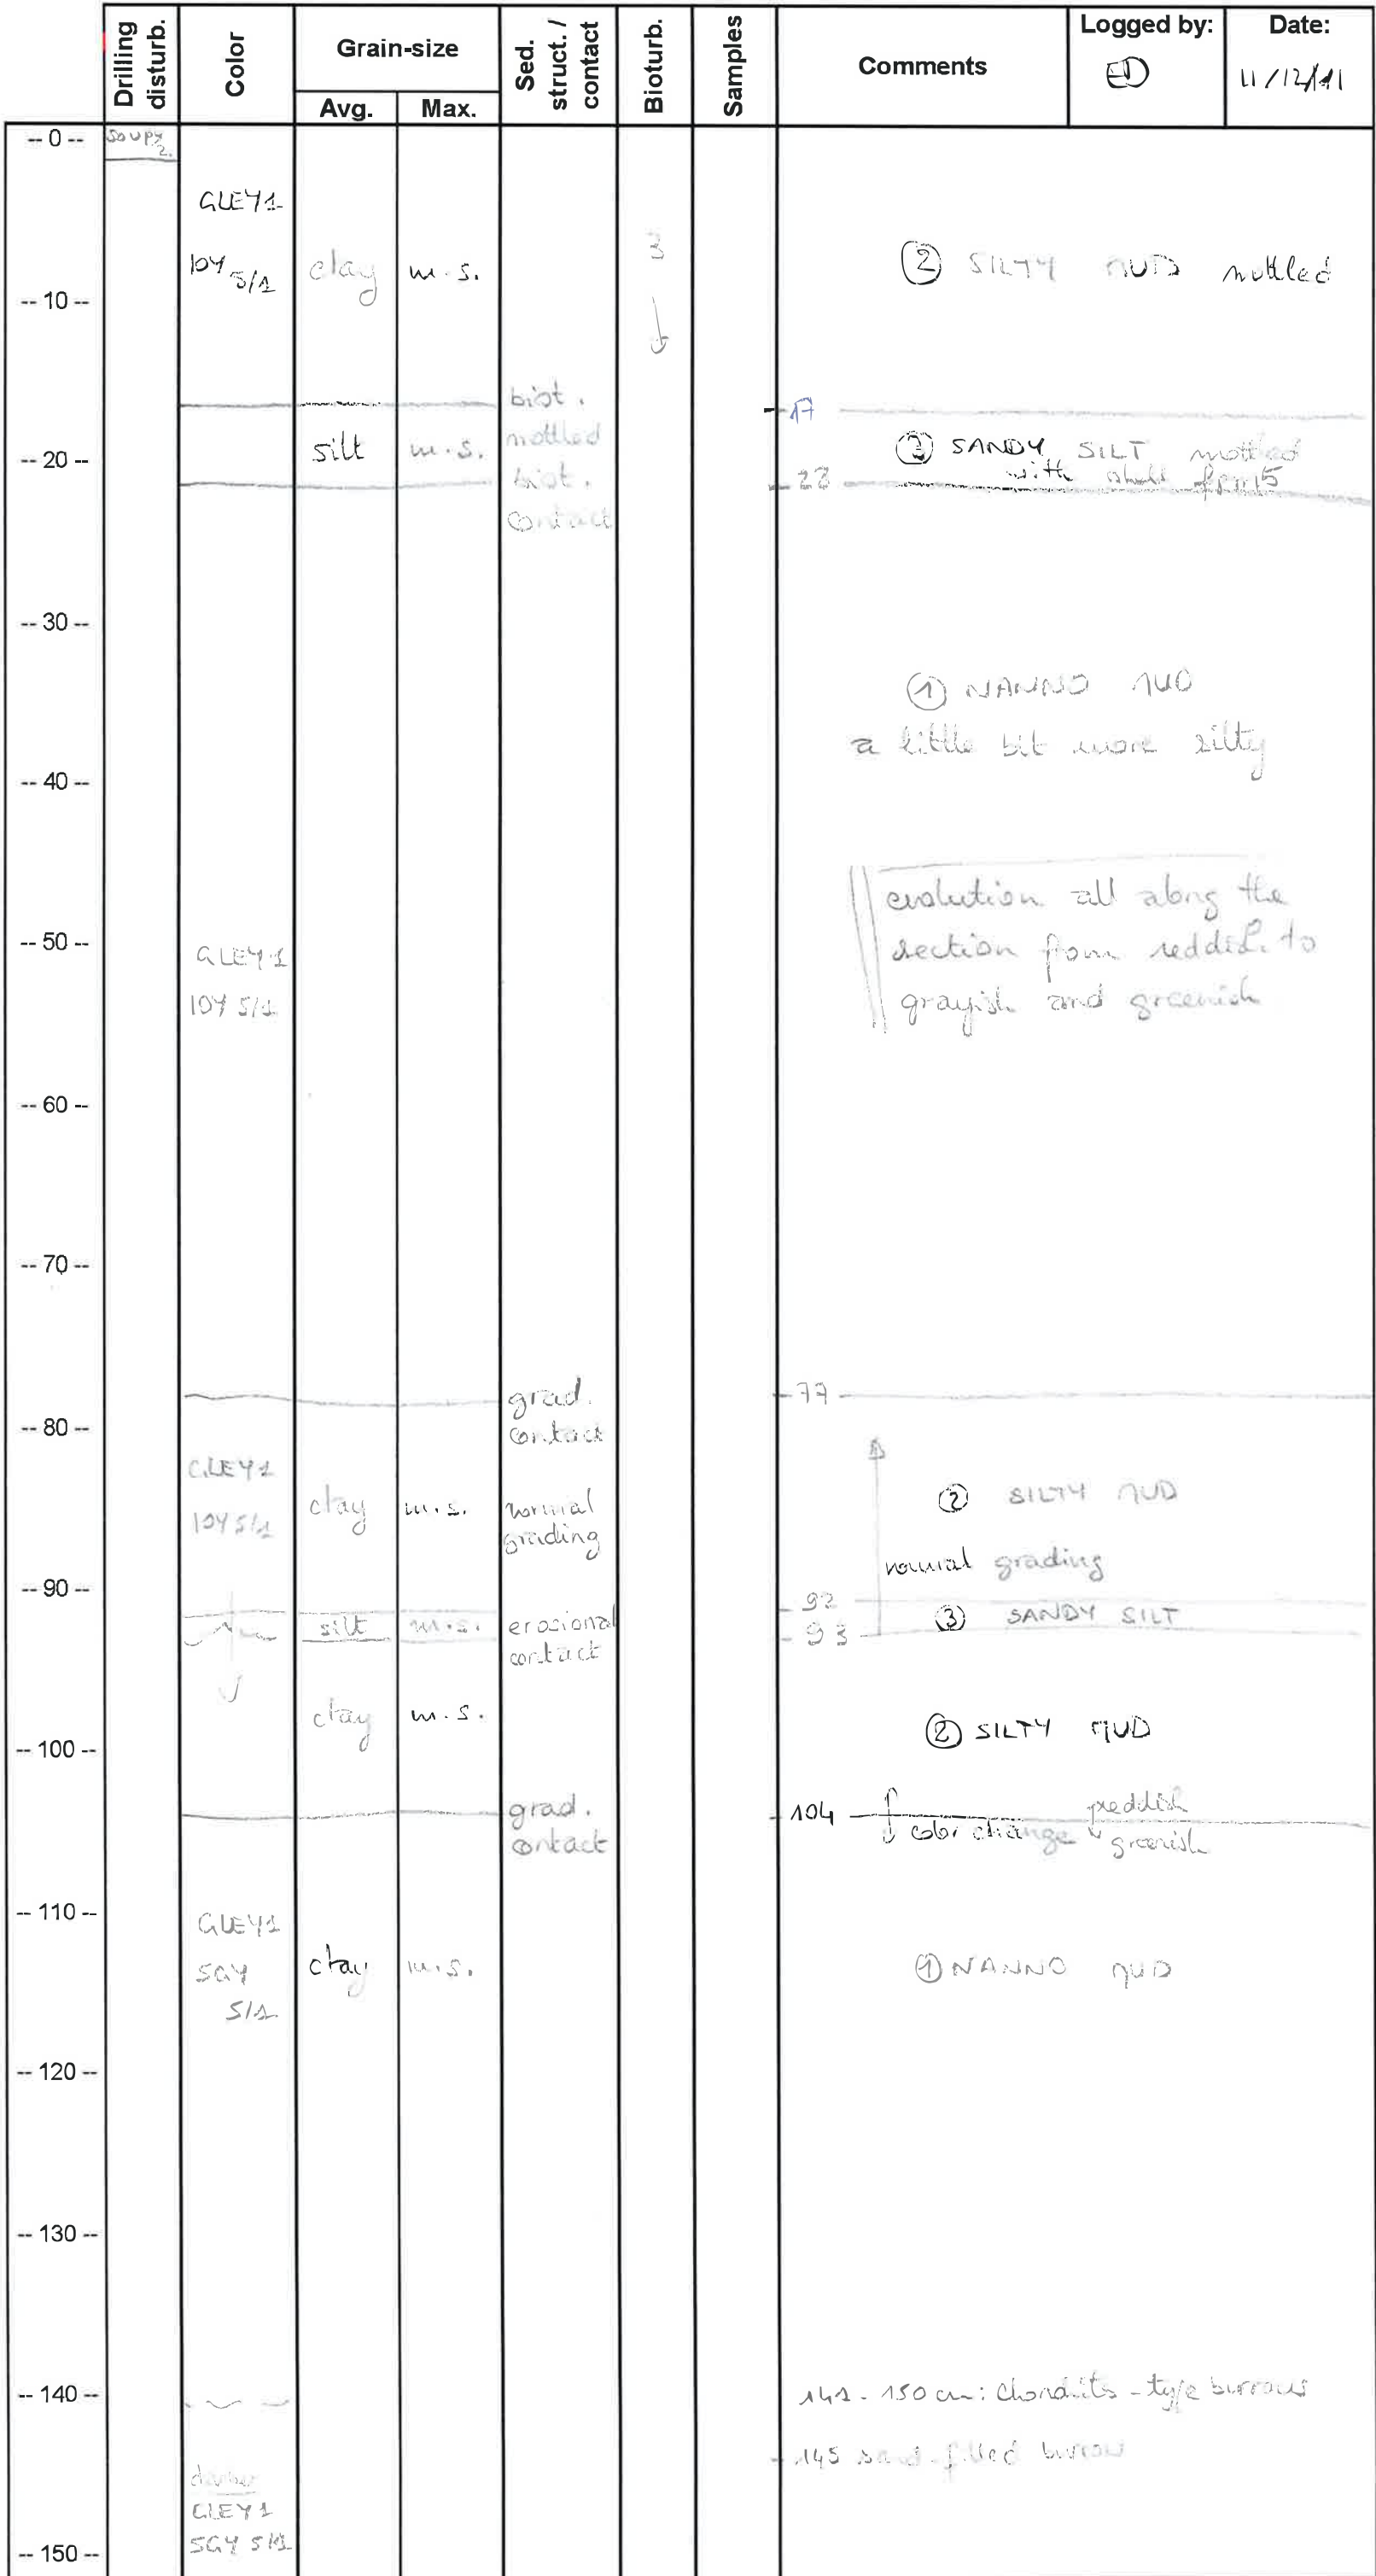 Drilling disturb.
Color
Grain-size
Avg.
Max.
Sed. struct. / contact
Bioturb.
Samples
Comments
Logged by:
ED
Date:
11/12/11
-- 0 --
SOUPY
2.
GLEY1
10Y 5/1
clay
m.s.
3
② SILTY MUD mottled
-- 10 --
biot.
17
mottled
silt
m.s.
③ SANDY SILT mottled
with shell
-- 20 --
biot.
contact
-- 30 --
① NANNO MUD
a little bit more silty
-- 40 --
evolution all along the
section from reddish to
grayish and greenish
-- 50 --
GLEY1
10Y 5/1
-- 60 --
-- 70 --
grad.
contact
77
-- 80 --
GLEY1
10Y 5/1
clay
m.s.
normal
grading
② SILTY MUD
normal grading
-- 90 --
92
silt
m.s.
erosional
contact
③ SANDY SILT
93
clay
m.s.
② SILTY MUD
-- 100 --
grad.
contact
104
color change
reddish
greenish
-- 110 --
GLEY1
5GY
5/1
clay
m.s.
① NANNO MUD
-- 120 --
-- 130 --
-- 140 --
141 - 150 cm: Chondrites - type burrows
145 sand-filled burrow
darker
GLEY1
5GY 5/1
-- 150 --